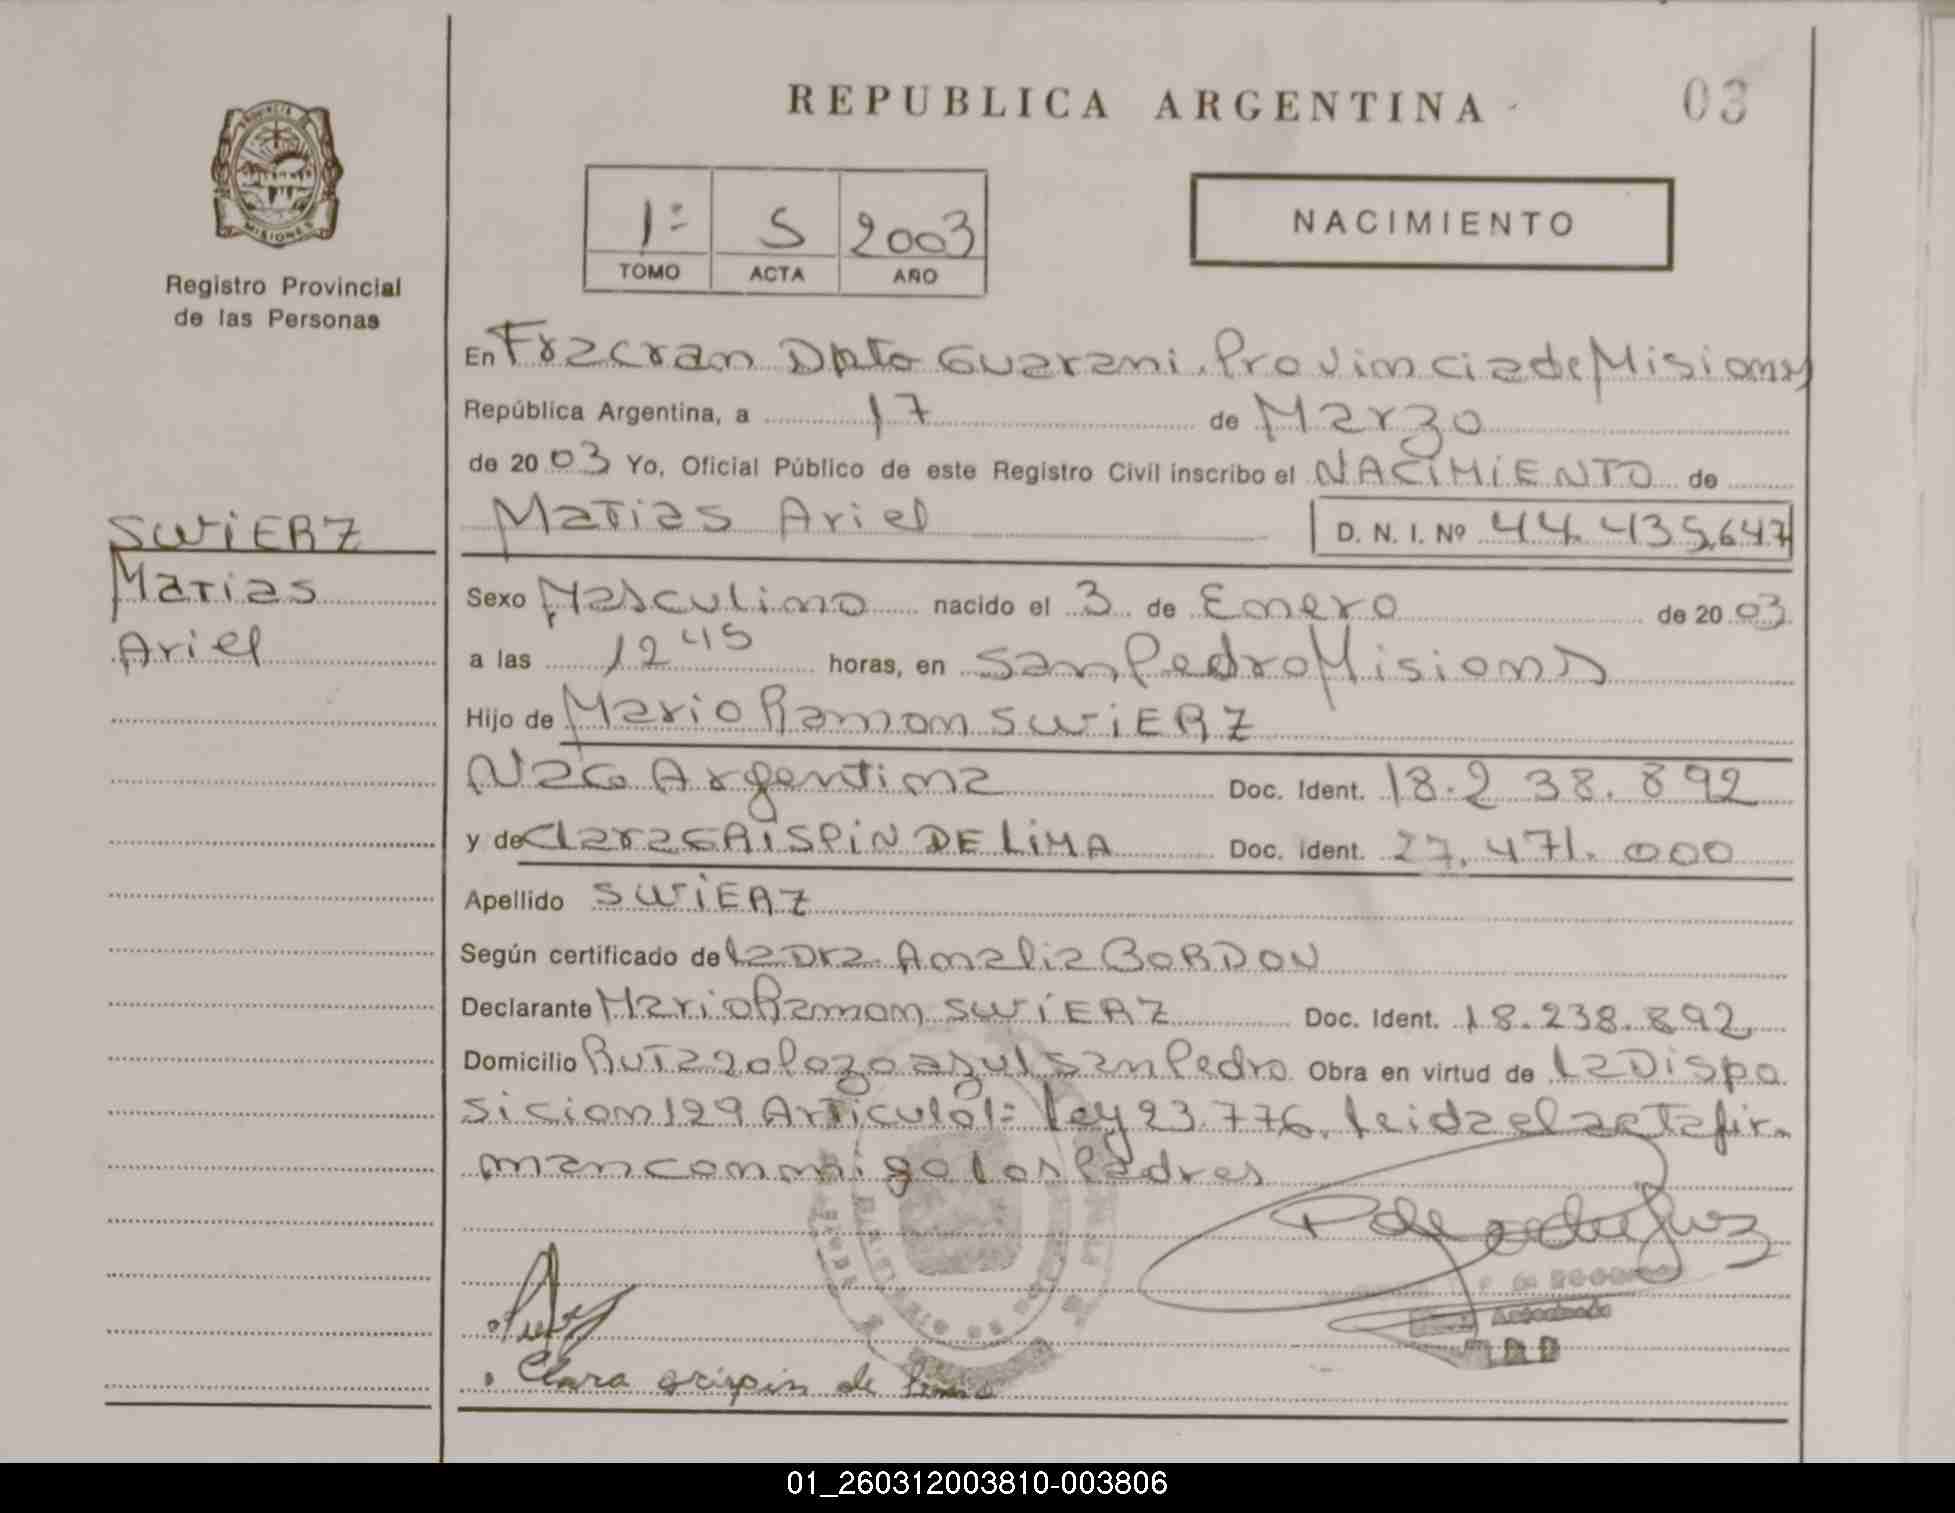 REPUBLICA ARGENTINA
03
PROVINCIA DE
MISIONES
Registro Provincial
de las Personas
1º S 2003
TOMO ACTA AÑO
NACIMIENTO
En Fracran Dpto Guarani. Provincia de Misiones
República Argentina, a 17 de Marzo
de 2003 Yo, Oficial Público de este Registro Civil inscribo el NACIMIENTO de
Matias Ariel D. N. I. Nº 44.435.647
SWIERZ
Matias
Ariel
Sexo Masculino nacido el 3 de Enero de 2003
a las 12 45 horas, en San Pedro Misiones
Hijo de Mario Ramon SWIERZ
Nac Argentina Doc. Ident. 18.238.892
y de Clara CRISPIN DE LIMA Doc. ident. 27.471.000
Apellido SWIERZ
Según certificado de la Dra. Amalia BORDON
Declarante Mario Ramon SWIERZ Doc. Ident. 18.238.892
Domicilio Ruta 20 Pozo azul San Pedro Obra en virtud de la Dispo
sicion 129 Articulo 1= ley 23.776. leida el acta fir
man conmigo los Padres
Clara crispin de lima
01_260312003810-003806